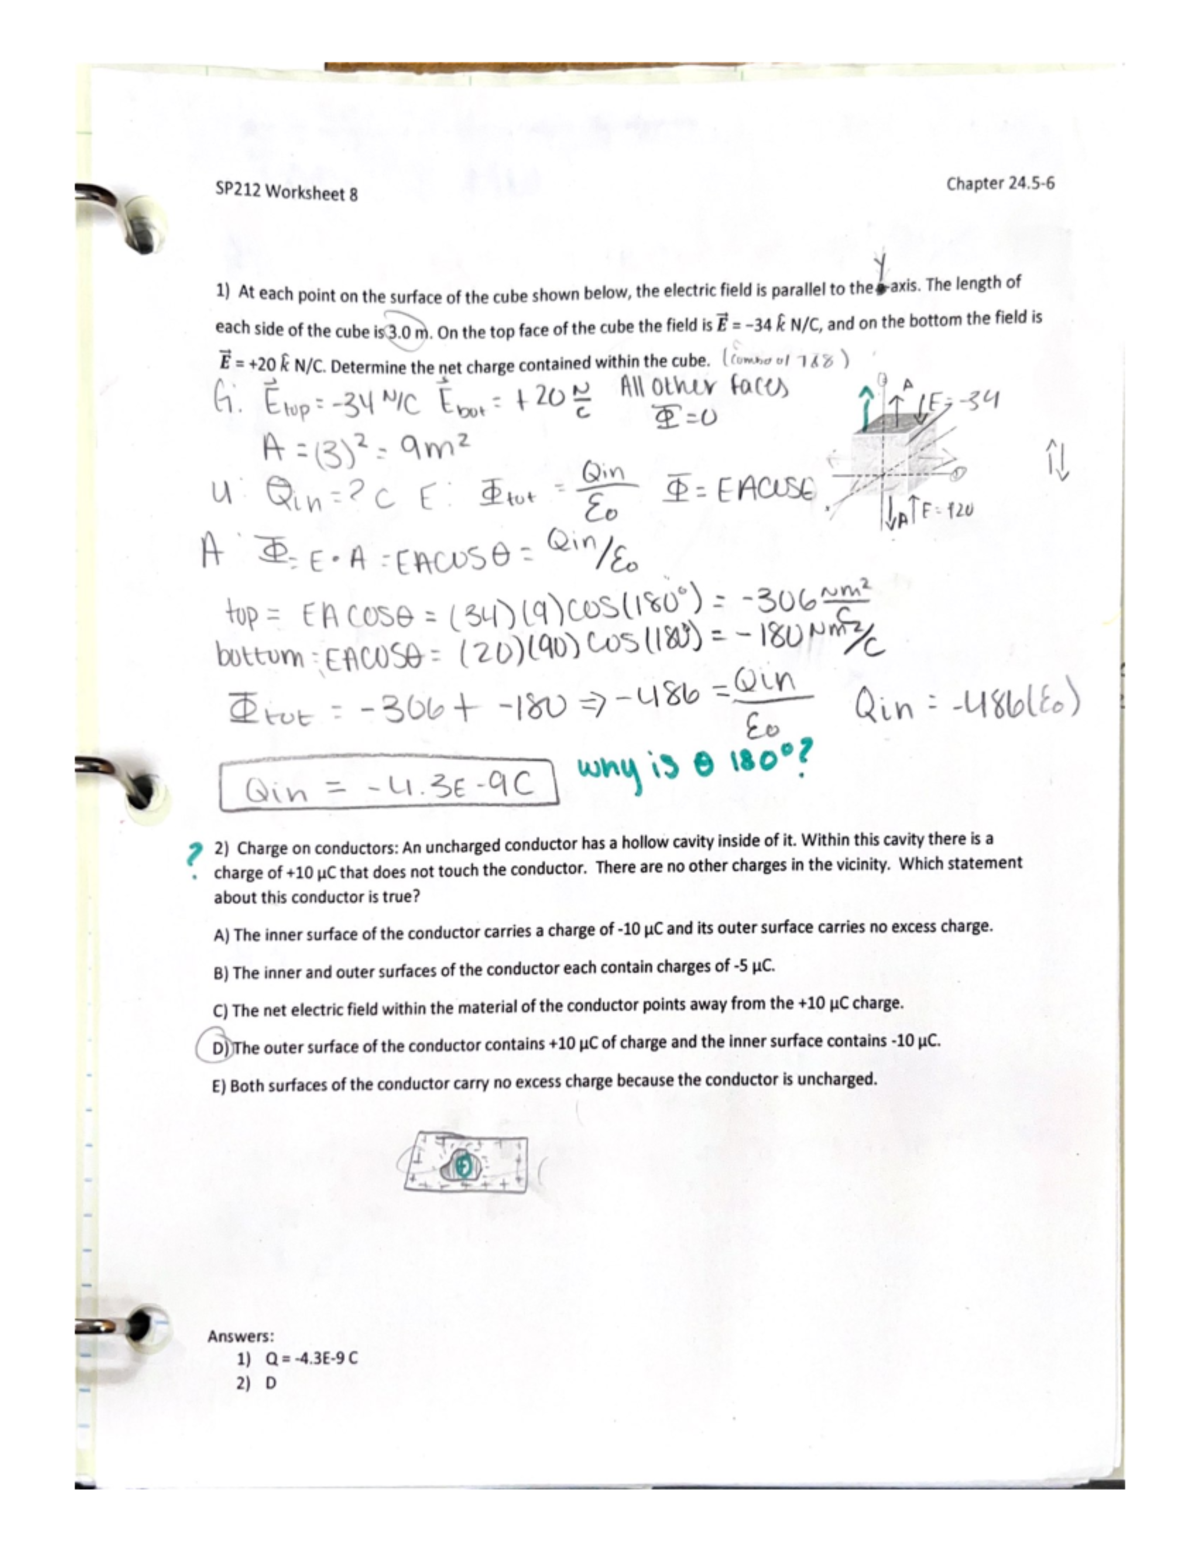 SP212 Worksheet 8
Chapter 24.5-6
y
1) At each point on the surface of the cube shown below, the electric field is parallel to the axis. The length of
each side of the cube is 3.0 m. On the top face of the cube the field is E⃗ = −34 k̂ N/C, and on the bottom the field is
E⃗ = +20 k̂ N/C. Determine the net charge contained within the cube. (combo of 7&8)
G: E⃗top = -34 N/C E⃗bot = +20 N/C All other faces
Φ = 0
A = (3)² = 9m²
A E = -34
U: Qin = ? C E: Φtot = Qin/ε₀ Φ = EACOSΘ
A E = +20
A: Φ = E • A = EACOSθ = Qin/ε₀
top = EACOSθ = (34)(9)cos(180°) = -306 Nm²/C
bottom = EACOSθ = (20)(90)cos(180) = -180 Nm²/C
Φtot = -306 + -180 ⇒ -486 = Qin/ε₀ Qin = -486(ε₀)
Qin = -4.3E-9C why is θ 180°?
? 2) Charge on conductors: An uncharged conductor has a hollow cavity inside of it. Within this cavity there is a
charge of +10 μC that does not touch the conductor. There are no other charges in the vicinity. Which statement
about this conductor is true?
A) The inner surface of the conductor carries a charge of -10 μC and its outer surface carries no excess charge.
B) The inner and outer surfaces of the conductor each contain charges of -5 μC.
C) The net electric field within the material of the conductor points away from the +10 μC charge.
D) The outer surface of the conductor contains +10 μC of charge and the inner surface contains -10 μC.
E) Both surfaces of the conductor carry no excess charge because the conductor is uncharged.
Answers:
1) Q = -4.3E-9 C
2) D